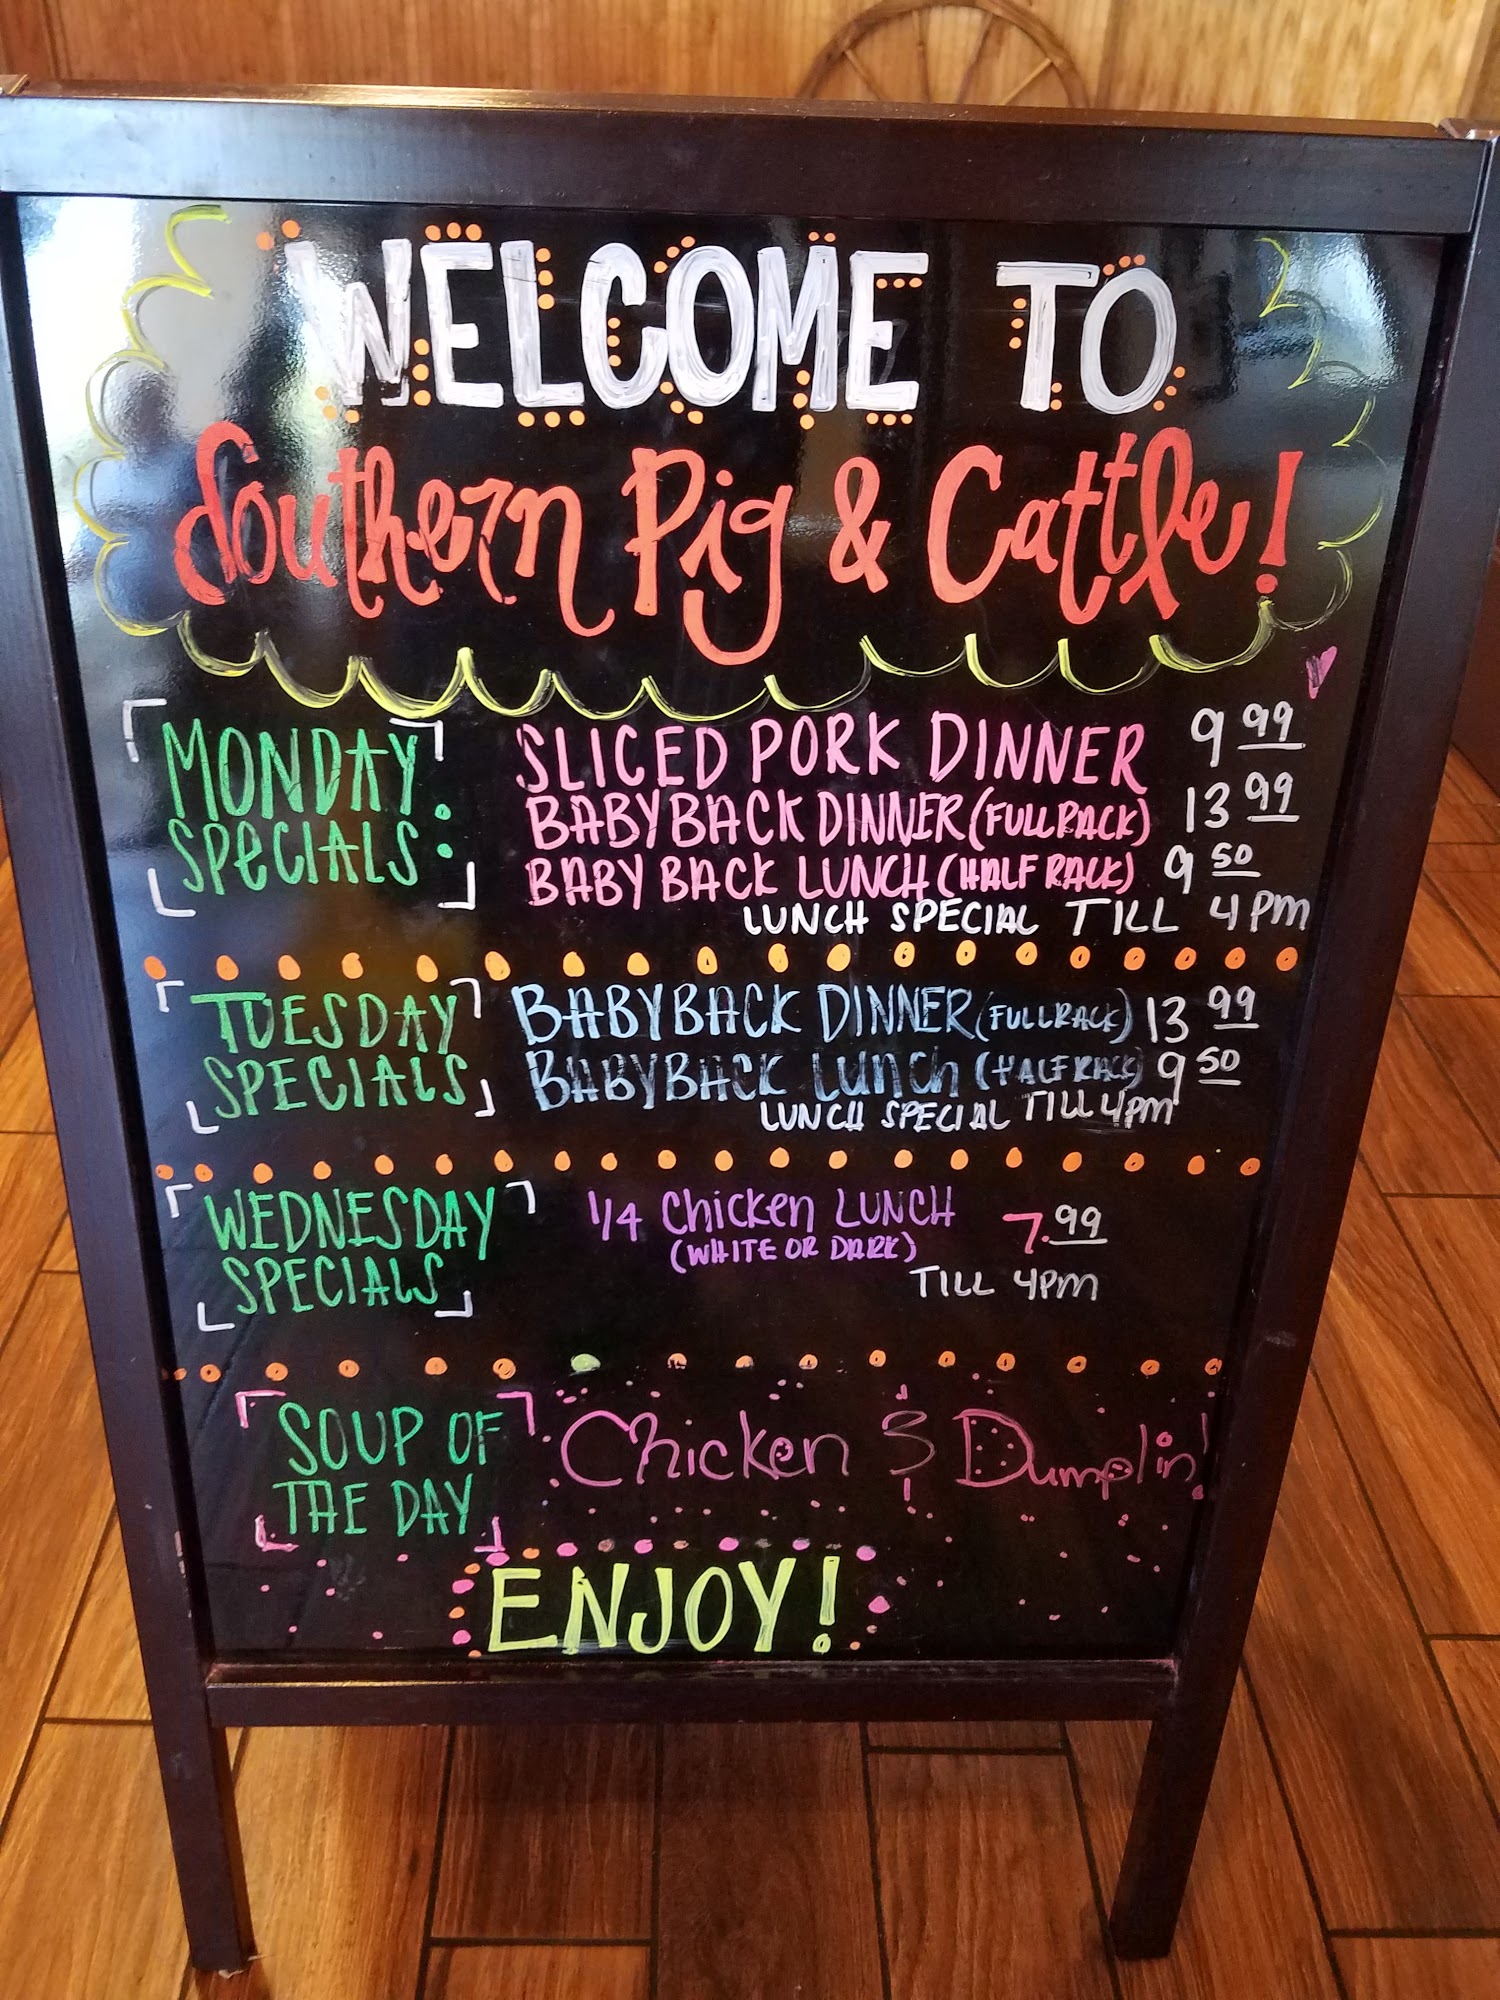 WELCOME TO
Southern Pig & Cattle!
MONDAY SPECIALS:
SLICED PORK DINNER 9 99
BABYBACK DINNER (FULL RACK) 13 99
BABY BACK LUNCH (HALF RACK) 9 50
LUNCH SPECIAL TILL 4PM
TUESDAY SPECIALS
BABYBACK DINNER (FULL RACK) 13 99
BABYBACK LUNCH (HALF RACK) 9 50
LUNCH SPECIAL TILL 4PM
WEDNESDAY SPECIALS
1/4 Chicken LUNCH 7.99
(WHITE OR DARK)
TILL 4PM
SOUP OF THE DAY
Chicken & Dumplin!
ENJOY!